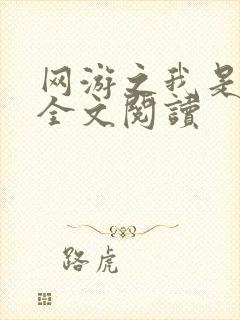 网游之我是
全文閱讀
路虎